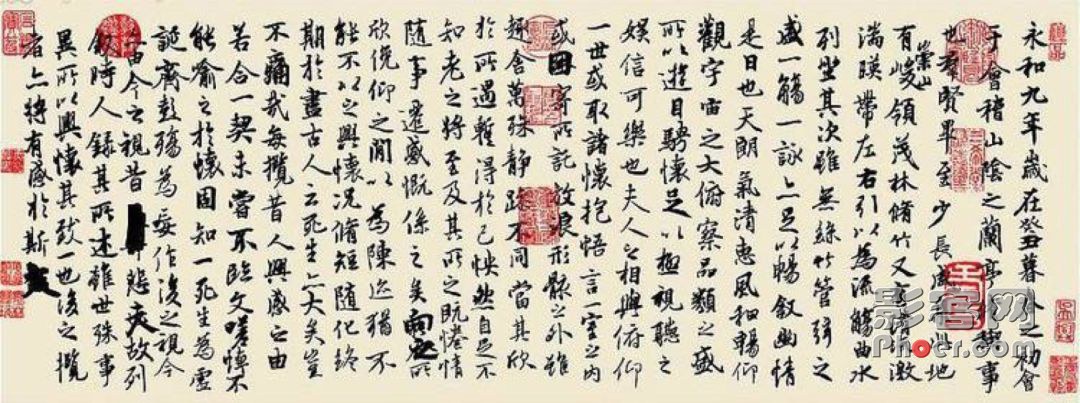 永和九年歲在癸丑暮春之初會
于會稽山陰之蘭亭事
也群賢畢至少長咸此地
有崇山峻領茂林脩竹又有清激
湍暎帶左右引以為流觴曲水
列坐其次雖無絲竹管弦之
盛一觴一詠亦足以暢敘幽情
是日也天朗氣清惠風和暢仰
觀宇宙之大俯察品類之盛
所以遊目騁懷足以極視聽之
娛信可樂也夫人之相與俯仰
一世或取諸懷抱悟言一室之內
或因寄所託放浪形骸之外雖
趣舍萬殊靜躁不同當其欣
於所遇暫得於己怏然自足不
知老之將至及其所之既惓情
隨事遷感慨係之矣向之所
欣俛仰之間以為陳迹猶不
能不以之興懷況脩短隨化終
期於盡古人云死生亦大矣豈
不痛哉每攬昔人興感之由
若合一契未嘗不臨文嗟悼不
能喻之於懷固知一死生為虛
誕齊彭殤為妄作後之視今
由今之視昔悲夫故列
敘時人錄其所述雖世殊事
異所以興懷其致一也後之攬
者亦將有感於斯文
影客网
Phoer.com